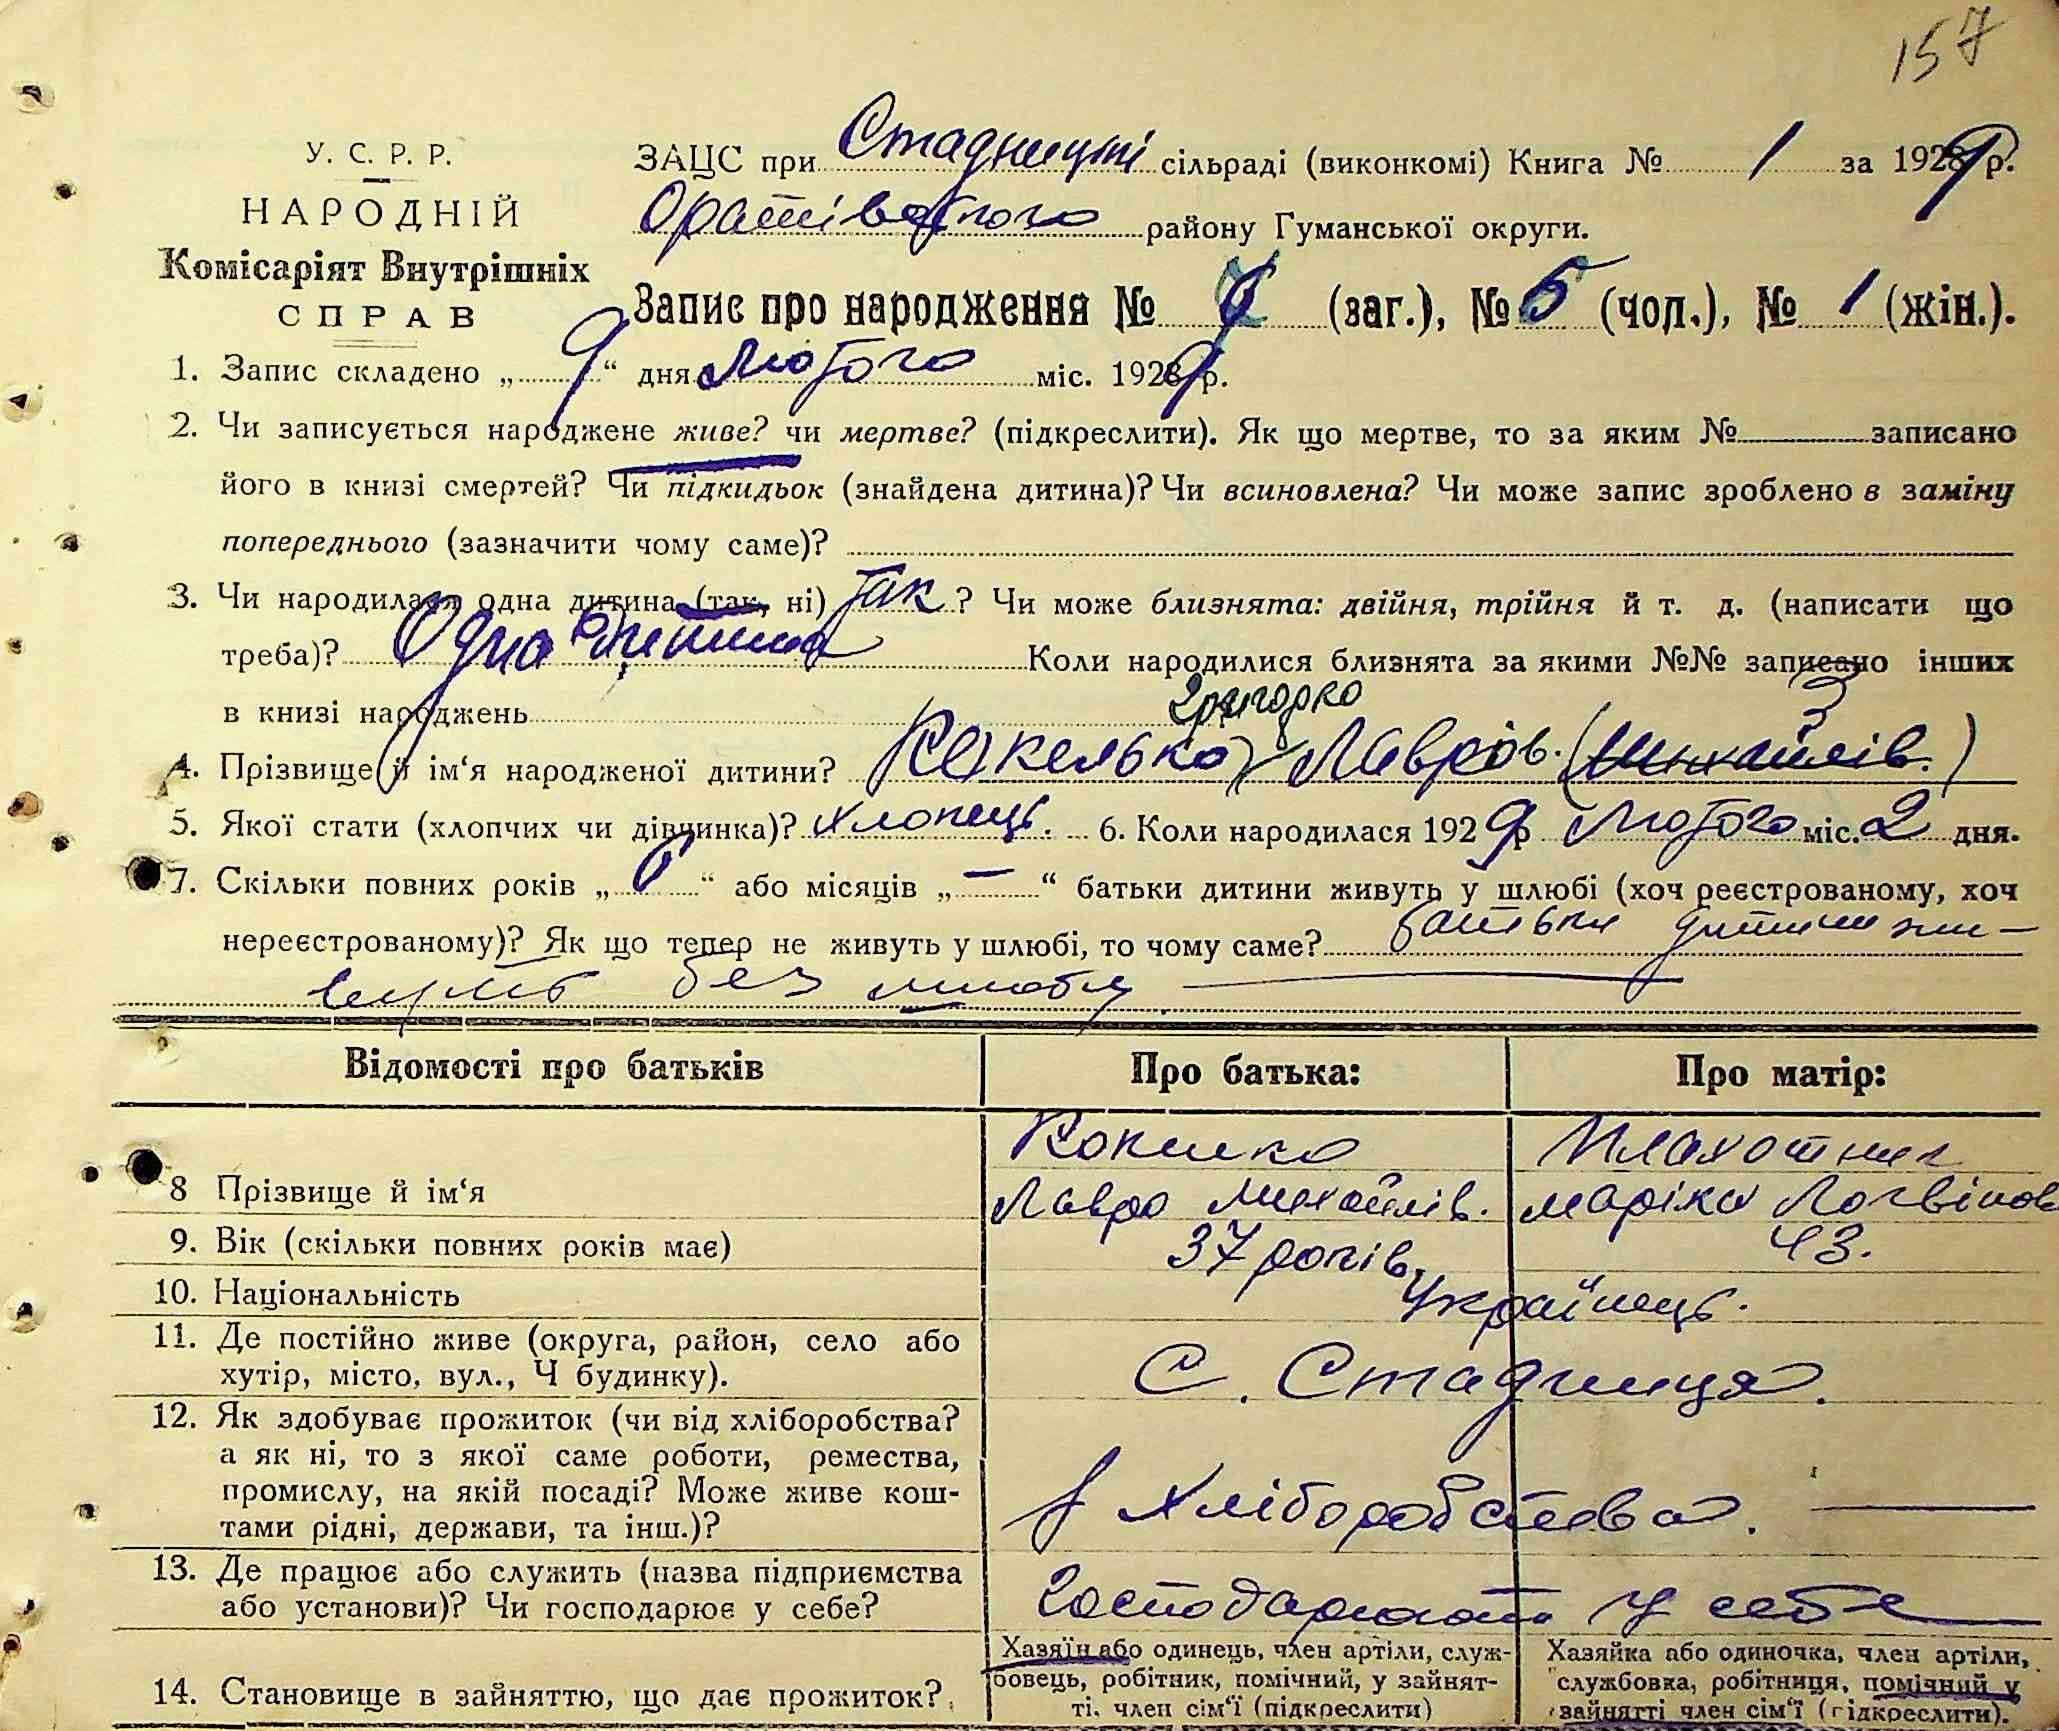 157
У. С. Р. Р.
НАРОДНІЙ
Комісаріят Внутрішніх
СПРАВ
ЗАЦС при Стадницькі сільраді (виконкомі) Книга № 1 за 1929 р.
Оратівського району Гуманської округи.
Запис про народження № (заг.), № 5 (чол.), № 1 (жін.).
1. Запис складено „ 9 “ дня Лютого міс. 1929 р.
2. Чи записується народжене живе? чи мертве? (підкреслити). Як що мертве, то за яким № записано
його в книзі смертей? Чи підкидьок (знайдена дитина)? Чи всиновлена? Чи може запис зроблено в заміну
попереднього (зазначити чому саме)?
3. Чи народилася одна дитина (так, ні) так ? Чи може близнята: двійня, трійня й т. д. (написати що
треба)? Одна дитина Коли народилися близнята за якими №№ записано інших
в книзі народжень
Григорко
4. Прізвище й ім‘я народженої дитини? Лавров. (Михайлів.)
5. Якої стати (хлопчих чи дівчинка)? хлопець. 6. Коли народилася 1929 р Лютого міс. 2 дня.
7. Скільки повних років „ “ або місяців „ — “ батьки дитини живуть у шлюбі (хоч реєстрованому, хоч
нереєстрованому)? Як що тепер не живуть у шлюбі, то чому саме? батьки дитини жи-
вуть без шлюбу
Відомості про батьків Про батька: Про матір:
8 Прізвище й ім‘я Лавро Михайлів. Плахотник Маріка
9. Вік (скільки повних років має) 37 років. 43.
10. Національність Українець.
11. Де постійно живе (округа, район, село або
хутір, місто, вул., Ч будинку). С. Стадниця.
12. Як здобуває прожиток (чи від хліборобства?
а як ні, то з якої саме роботи, ремества,
промислу, на якій посаді? Може живе кош-
тами рідні, держави, та інш.)? Хліборобства.
13. Де працює або служить (назва підприємства
або установи)? Чи господарює у себе? Господарюють у себе
14. Становище в зайняттю, що дає прожиток?
Хазяїн або одинець, член артіли, служ-
бовець, робітник, помічний, у зайнят-
ті, член сім‘ї (підкреслити)
Хазяйка або одиночка, член артіли,
службовка, робітниця, помічний у
зайнятті член сім‘ї (підкреслити).